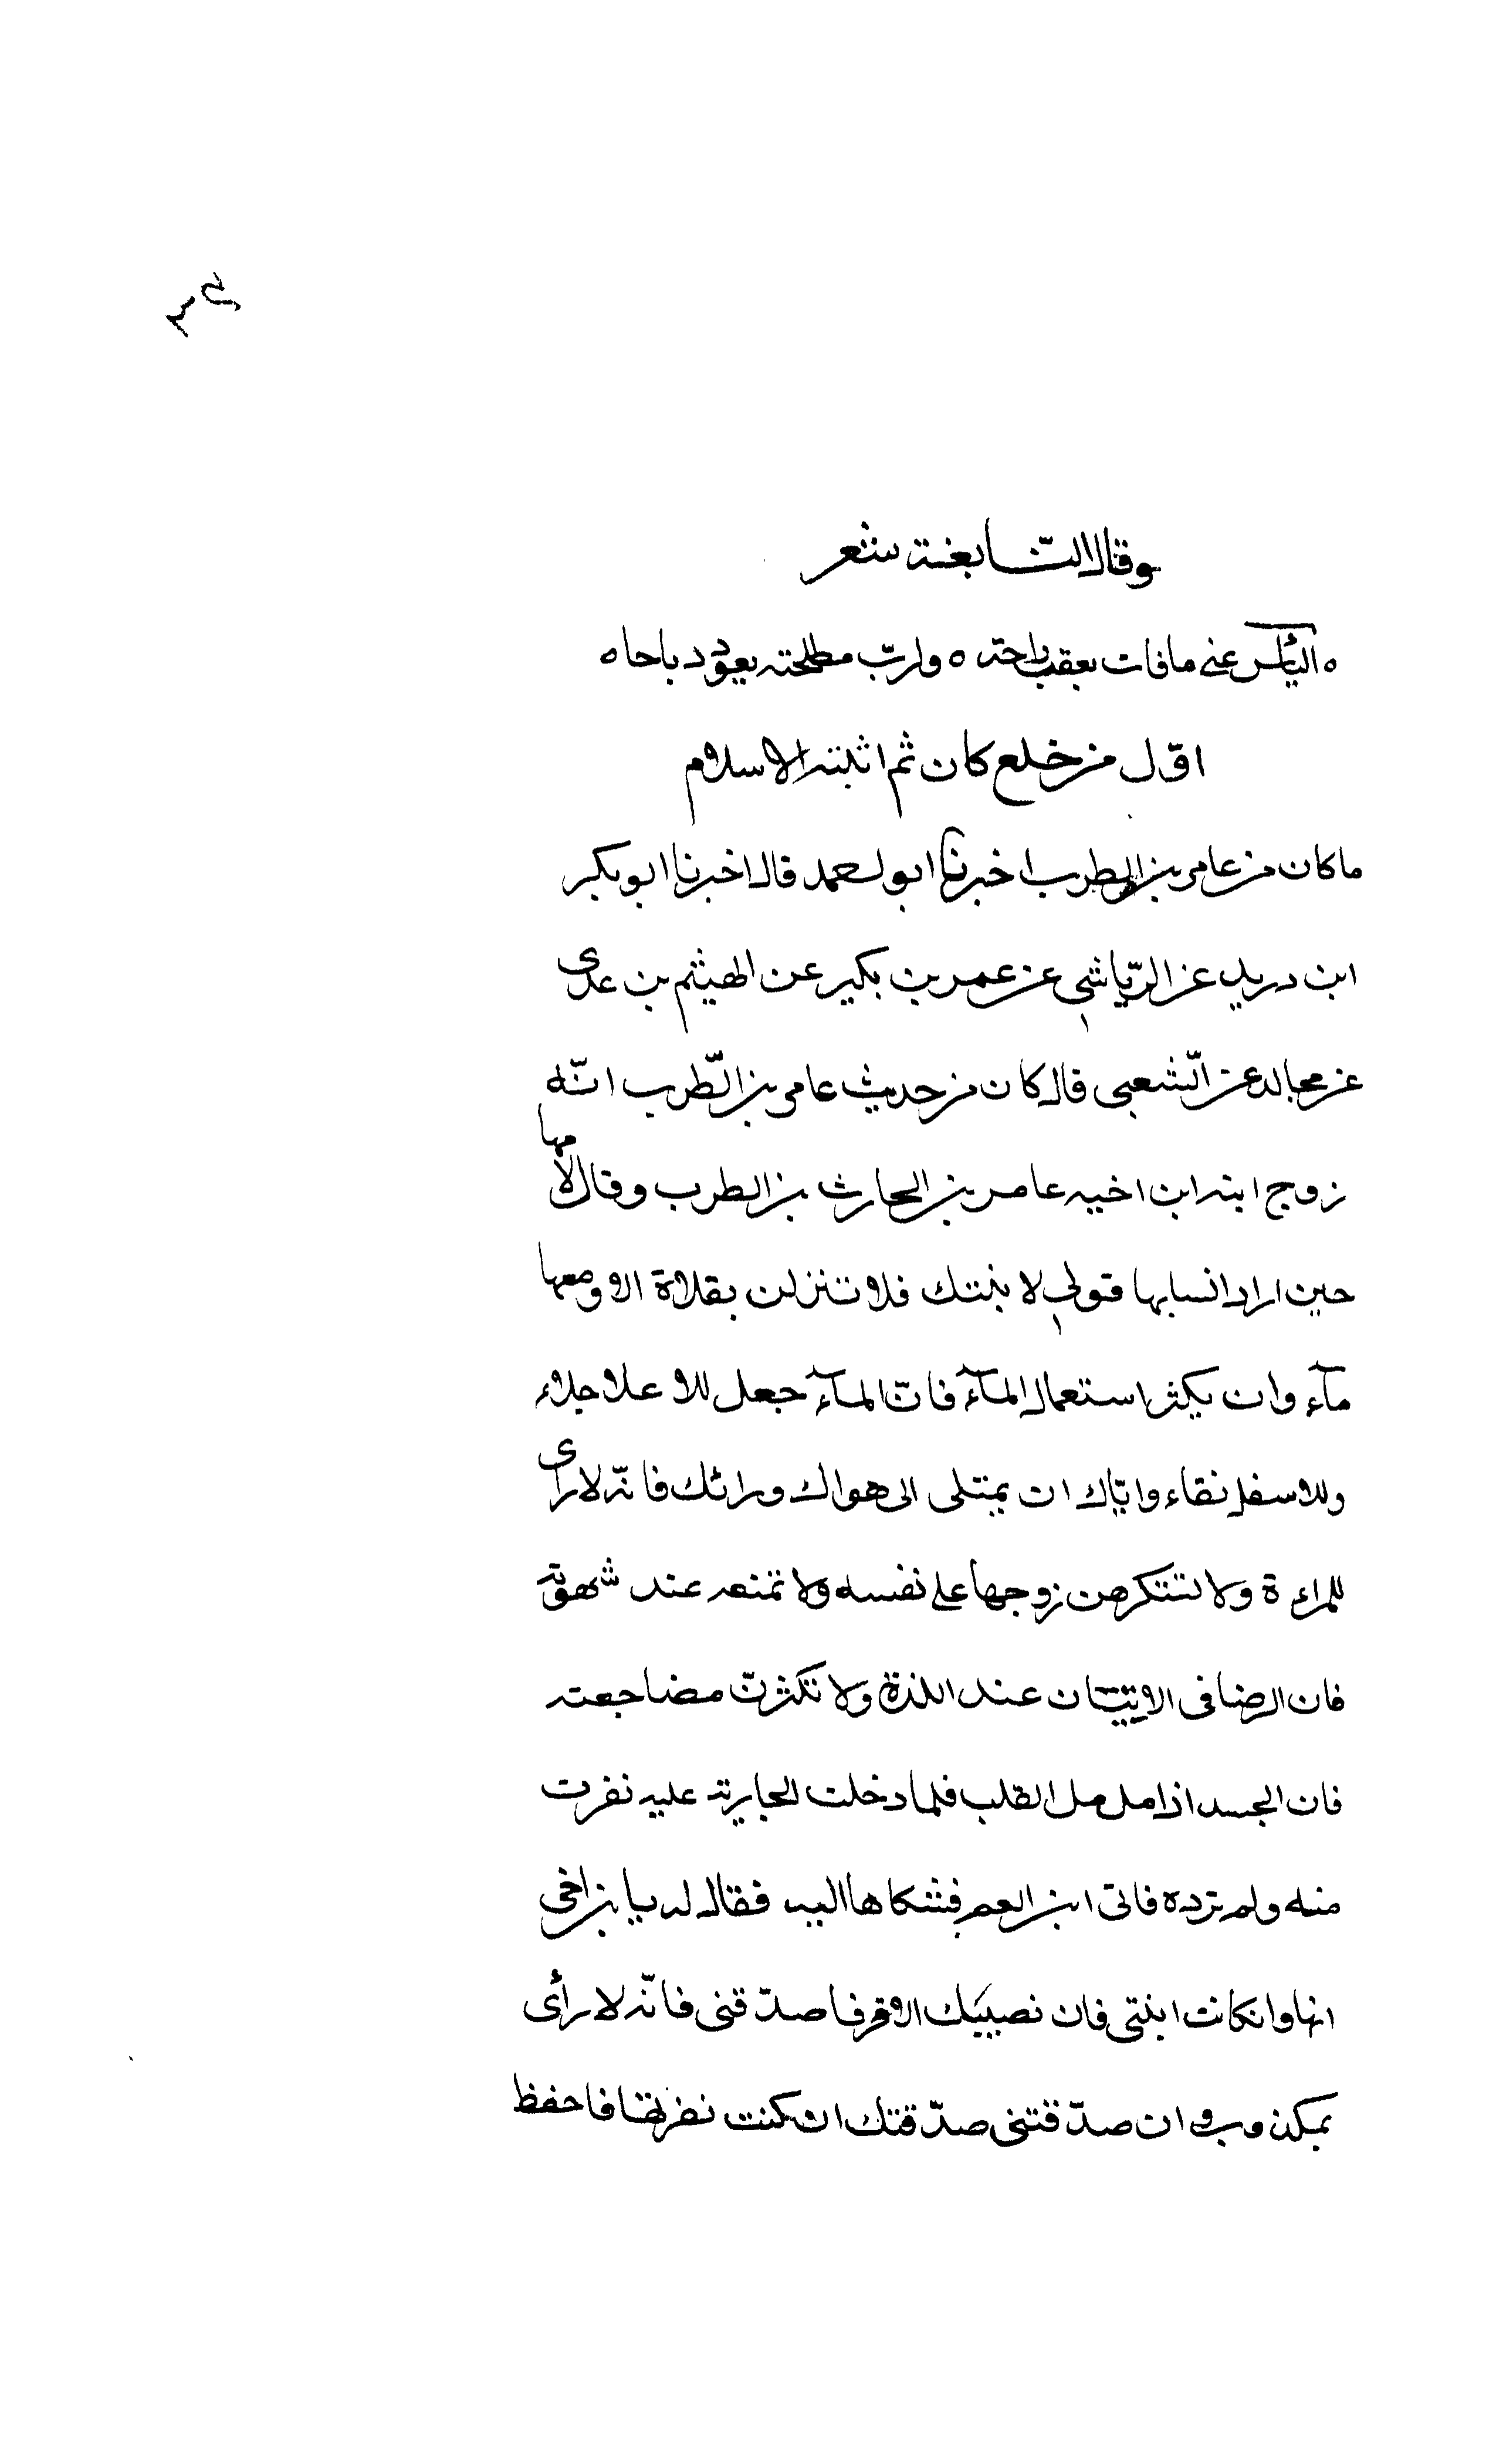 وقال النابغة شعر
ه اليأس عني ما فات يعقب راحته ه ولربّ مطلحته يعود باحا ه
اوّل من خلع كان ثم اثبته الاسلام
ما كان من عامر بن الطرب اخبرنا ابو احمد قال اخبرنا ابو بكر
ابن دريد عن الريّاشي عن عمر بن بكير عن الهيثم بن عدى
عن مجالد عن الشّعبى قال كان من حديث عامر بن الطّرب انّه
زوج ابنته ابن اخيه عامر بن الحارث بن الطرب وقال لامها
حين اراد انسابها قولي لابنتك فلا تنزلن بفلاة الا ومعها
مآء وان يكثر استعمال المآء فانّ المآء جعل للاعلا جلاء
وللاسفل نقاء وايّاك ان يمتلى الى هواك ورائك فانّه لا راى
للمراءة ولا تستكرهن زوجها على نفسه ولا تمنعه عند شهوته
فان الرضا فى الاتيان عند اللذة ولا تكثرنّ مضاجعته
فان الجسد اذا مل مل القلب فلما دخلت الجارية عليه نفرت
منه ولم ترده فاتى ابن العم فشكاها اليه فقال له يا بن اخى
انها وانكانت ابنتى فان نصيبك الاوفر فاصدّقنى فانّه لا رأى
يمكذوب وان صدّقتنى صدّقتك ان كنت نفرتها فاحفظ